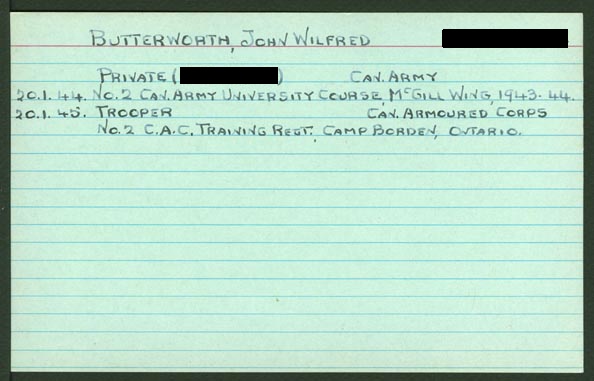 BUTTERWORTH, JOHN WILFRED
PRIVATE ( ) CAN. ARMY
20.1.44. NO. 2 CAN. ARMY UNIVERSITY COURSE, MCGILL WING, 1943-44.
20.1.45. TROOPER CAN. ARMOURED CORPS
NO. 2 C.A.C. TRAINING REGT., CAMP BORDEN, ONTARIO.